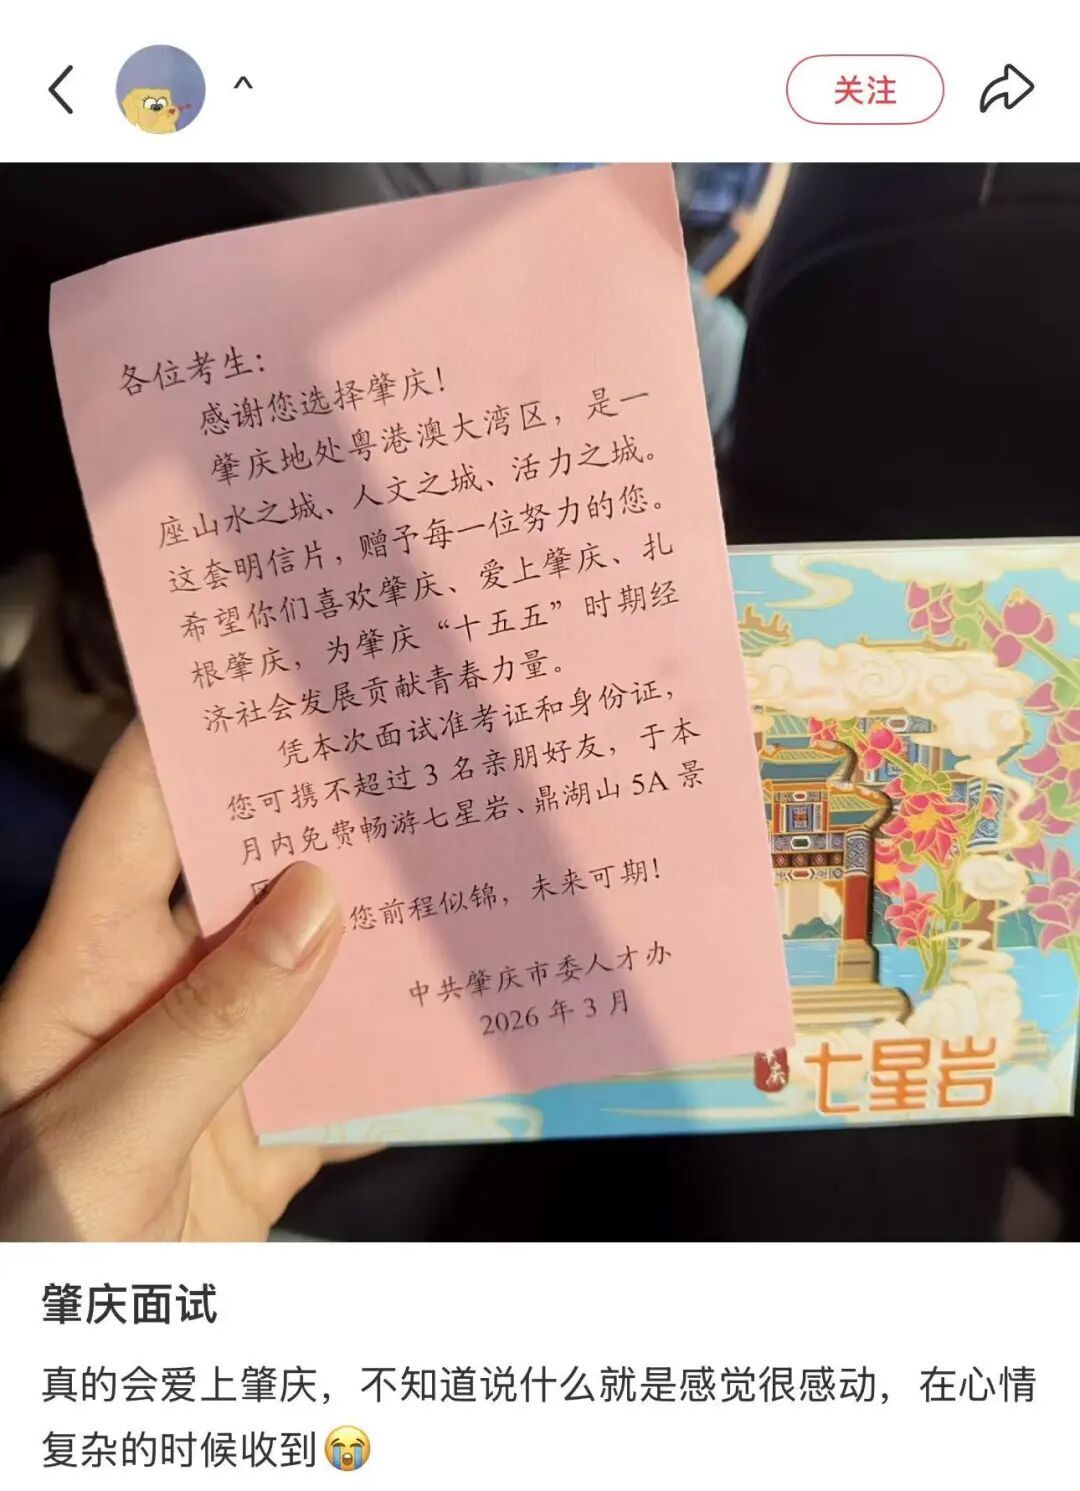 ^
关注
各位考生：
感谢您选择肇庆！
肇庆地处粤港澳大湾区，是一
座山水之城、人文之城、活力之城。
这套明信片，赠予每一位努力的您。
希望你们喜欢肇庆、爱上肇庆、扎
根肇庆，为肇庆“十五五”时期经
济社会发展贡献青春力量。
凭本次面试准考证和身份证，
您可携不超过3名亲朋好友，于本
月内免费畅游七星岩、鼎湖山5A景
您前程似锦，未来可期！
中共肇庆市委人才办
2026年3月
七星岩
肇庆面试
真的会爱上肇庆，不知道说什么就是感觉很感动，在心情
复杂的时候收到😭